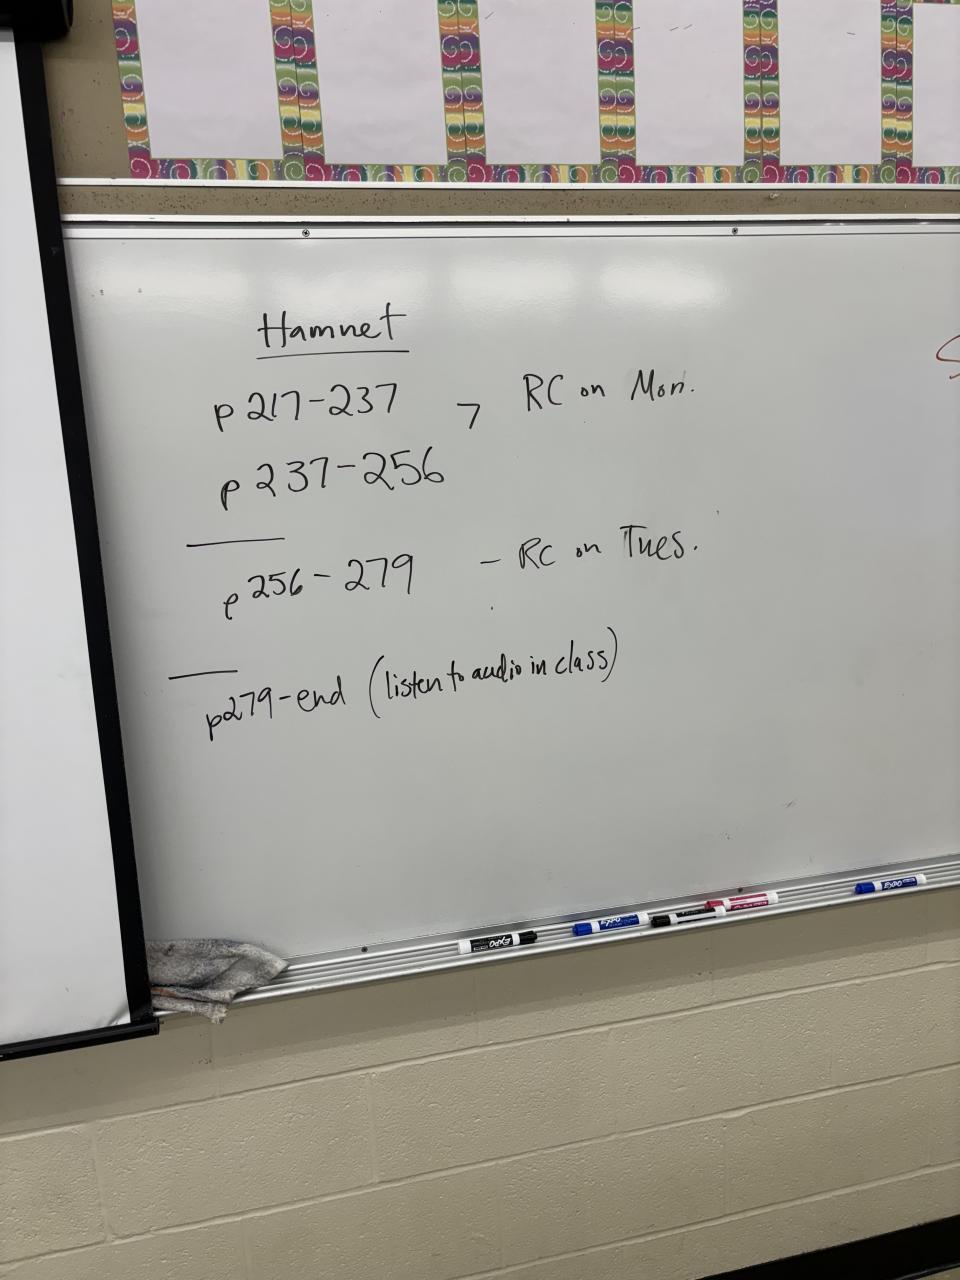 Hamnet
p 217-237 > RC on Mon.
p 237-256
p 256-279 - RC on Tues.
p279-end (listen to audio in class)
EXPO
EXPO
EXPO